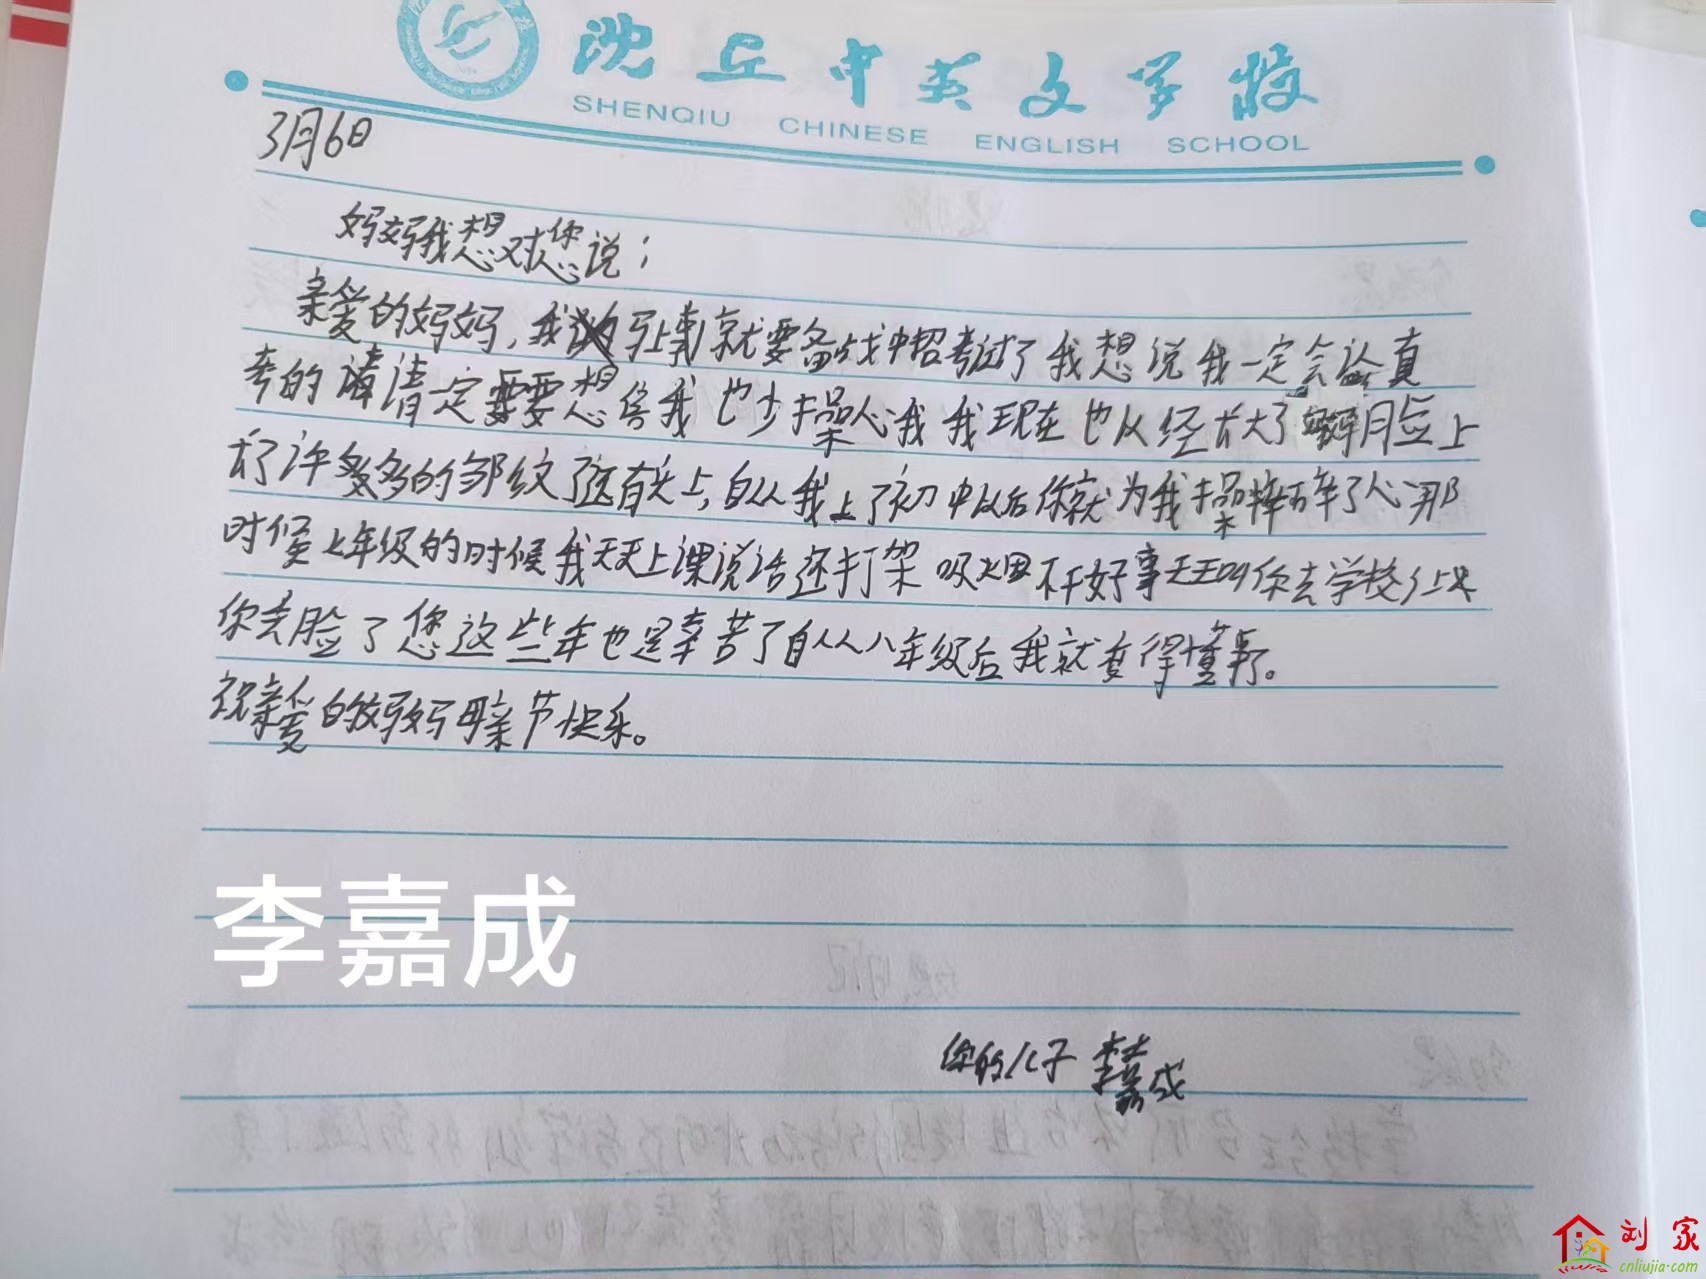 沈丘中英文学校
SHENQIU CHINESE ENGLISH SCHOOL
3月6日
妈妈我想对您说：
亲爱的妈妈，我马上事就要备战中招考试了我想说我一定会认真
考的请一定要想信我也少操心我我现在也从经长大了脸上
长了许多多的邹纹了还有头上，自从我上了初中以后你就为我操碎了心那
时候七年级的时候我天天上课说话还打架吸烟不干好事天天叫你去学校
你丢脸了您这些年也是幸苦了自从八年级后我就变得懂事了。
祝亲爱的妈妈母亲节快乐。
李嘉成
你的儿子 李嘉成
刘家
cnliujia.com